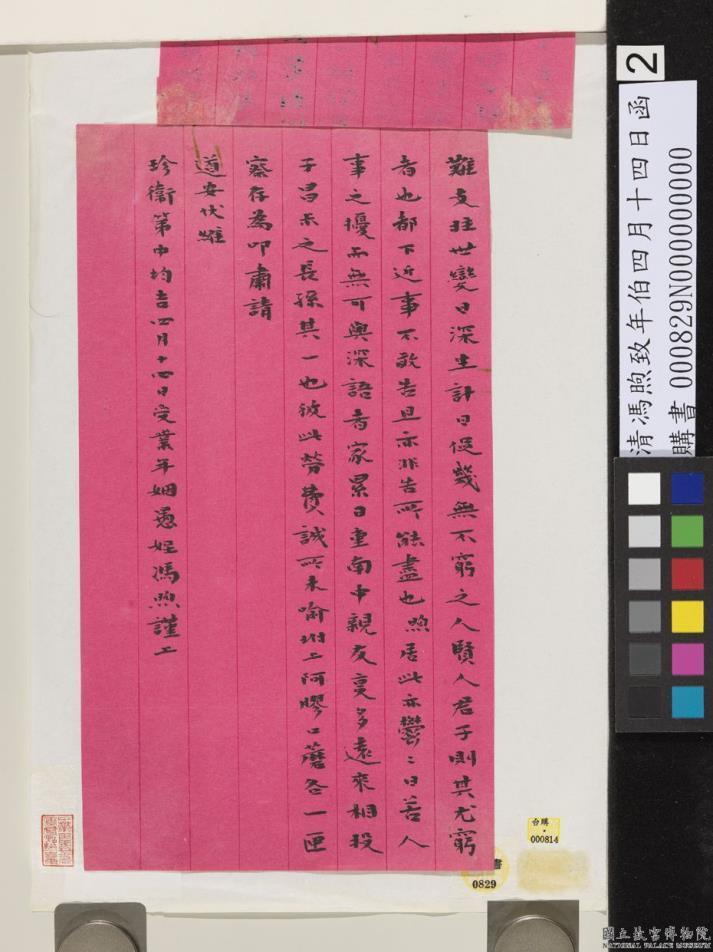 難支拄世變日深生計日促幾無不窮之人賢人君子則其尤窮
者也都下近事不敢告且亦非告所能盡也煦居此亦鬱〻日苦人
事之擾而無可與深語者家累日重南中親友裏多遠來相投
子昌示之長孫其一也彼此勞費誠所未喻坿上阿膠口蘑各一匣
察存為叩肅請
道安伏雖
珍衛第中均吉四月十四日受業年姻愚姪馮煦謹上
清馮煦致年伯四月十四日函
購書 000829N000000000
2
合購
000814
書
0829
國立故宮博物院
NATIONAL PALACE MUSEUM